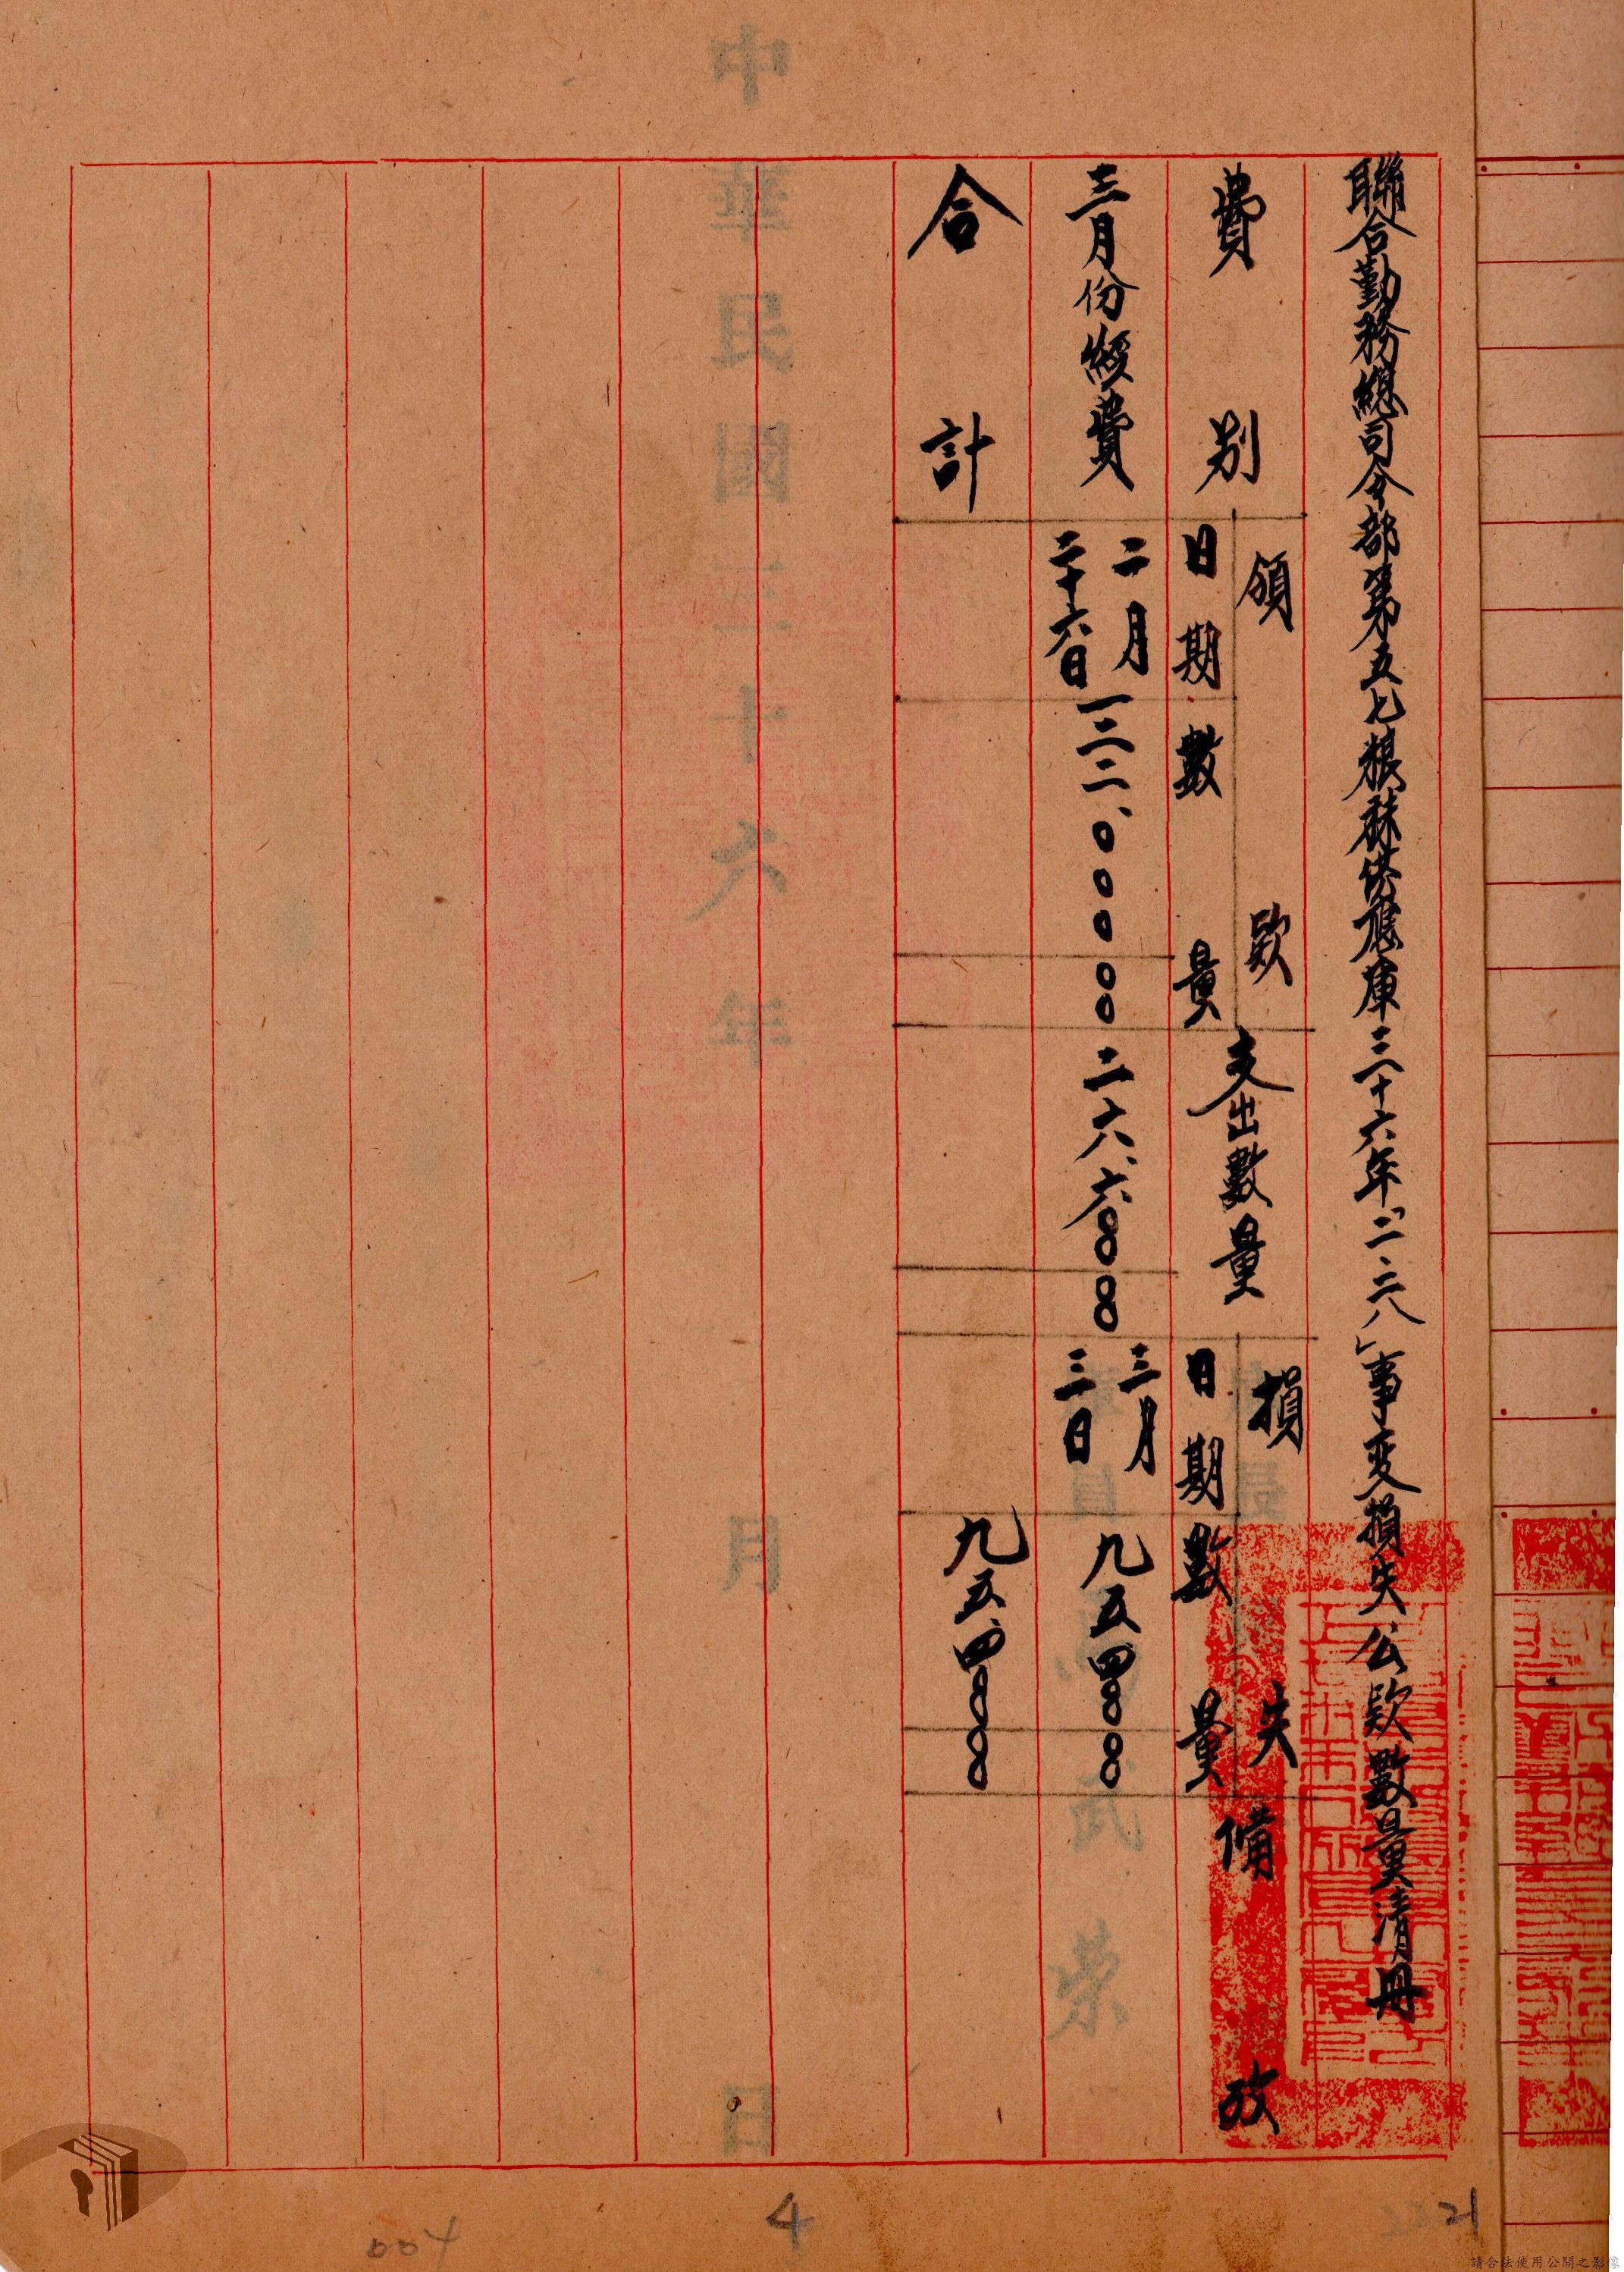 聯合勤務總司令部第五七粮秣供應庫三十六年「二．二八」事変損失公欵數量清冊
費別
領欵
日期
數量
支出數量
損失
日期
數量
備攷
三月份經費
二月
二十六日
一二二、〇〇〇〇〇
二六、六〇〇〇〇
三月
三日
九五、四〇〇〇〇
合計
九五、四〇〇〇〇
中華民國三十六年 月 日
004
4
21
請合法使用公開之影像